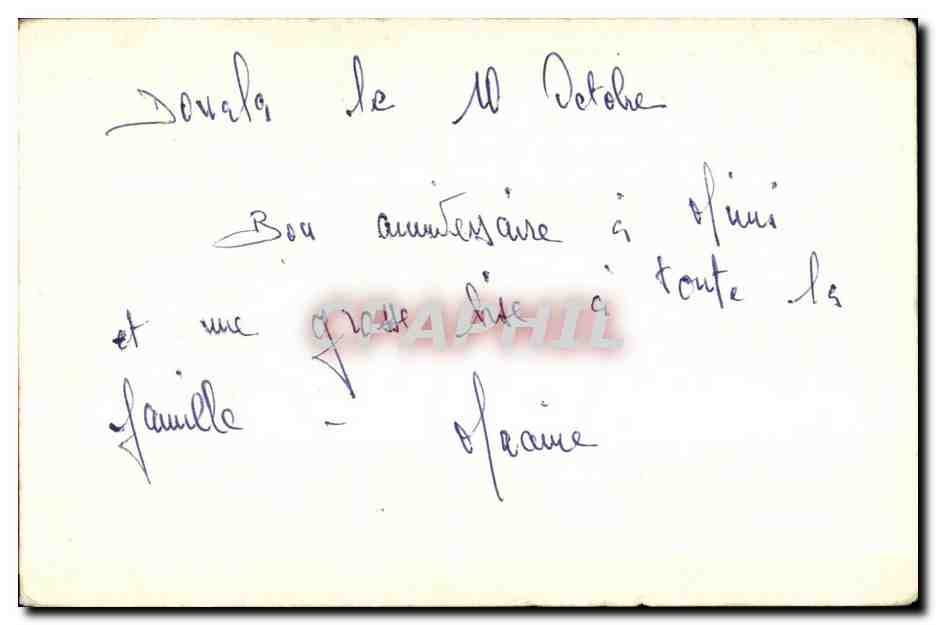 Douala le 10 Octobre
Bon anniversaire à Mimi
et une grosse bise à toute la
GRAPHIL
famille -